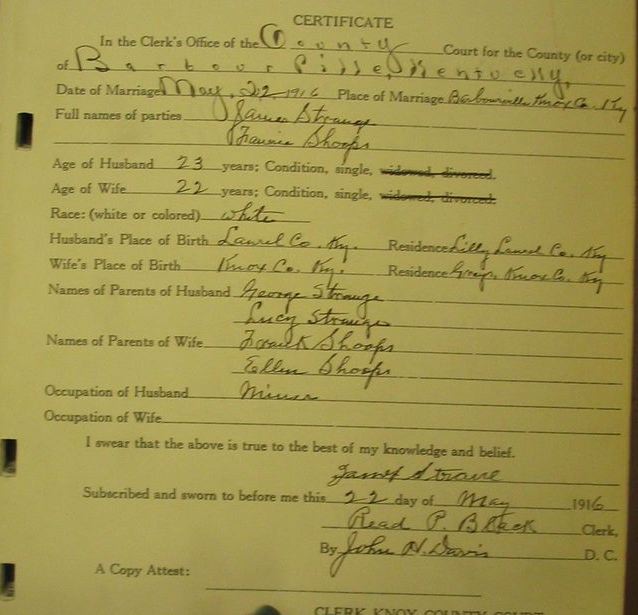 CERTIFICATE
In the Clerk's Office of the County Court for the County (or city)
of Barbourville, Kentucky,
Date of Marriage May, 22, 1916 Place of Marriage Barbourville Knox Co. Ky
Full names of parties James Strange
Fannie Shoops
Age of Husband 23 years; Condition, single, widowed, divorced.
Age of Wife 22 years; Condition, single, widowed, divorced.
Race: (white or colored) white
Husband's Place of Birth Laurel Co. Ky. Residence Lilly Laurel Co. Ky
Wife's Place of Birth Knox Co. Ky. Residence Knox Co. Ky
Names of Parents of Husband George Strange
Lucy Strange
Names of Parents of Wife Frank Shoops
Ellen Shoops
Occupation of Husband Miner
Occupation of Wife
I swear that the above is true to the best of my knowledge and belief.
James
Subscribed and sworn to before me this 22 day of May 1916
Read P. Black Clerk,
By John H. Davis D. C.
A Copy Attest:
CLERK KNOX COUNTY COURT